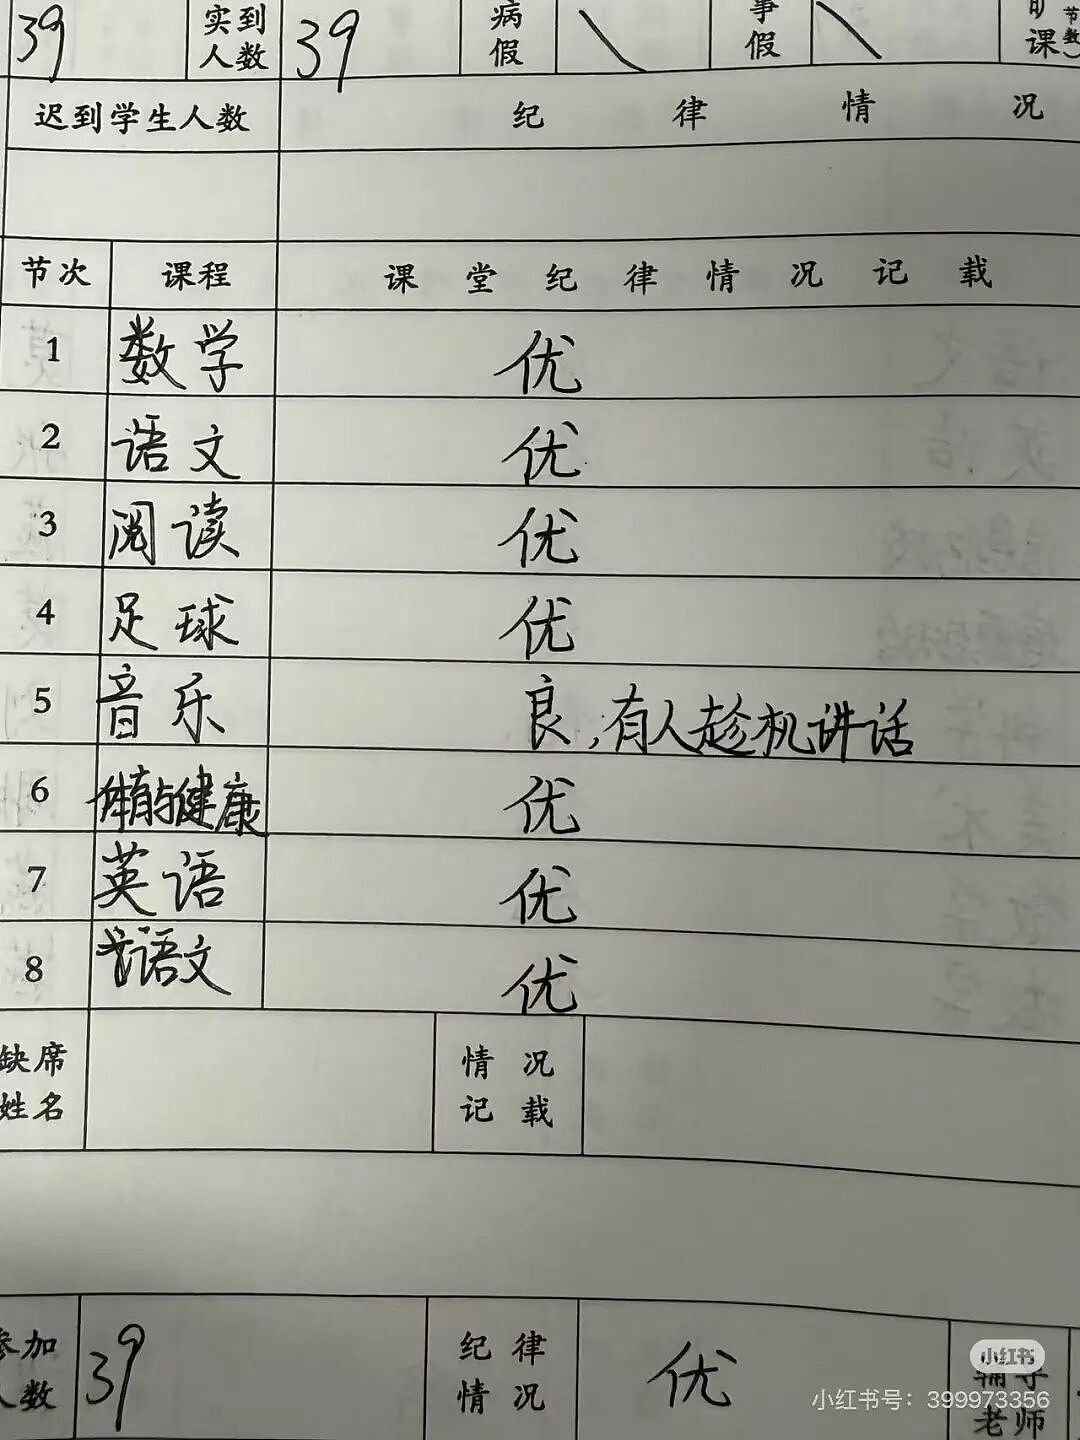 39 实到人数 39 病假 \ 事假 \ 旷课 节数)
迟到学生人数 纪律情况
节次 课程 课堂纪律情况记载
1 数学 优
2 语文 优
3 阅读 优
4 足球 优
5 音乐 良,有人趁机讲话
6 体育与健康 优
7 英语 优
8 语文 优
缺席姓名 情况记载
参加人数 39 纪律情况 优 辅导老师
小红书
小红书号：399973356